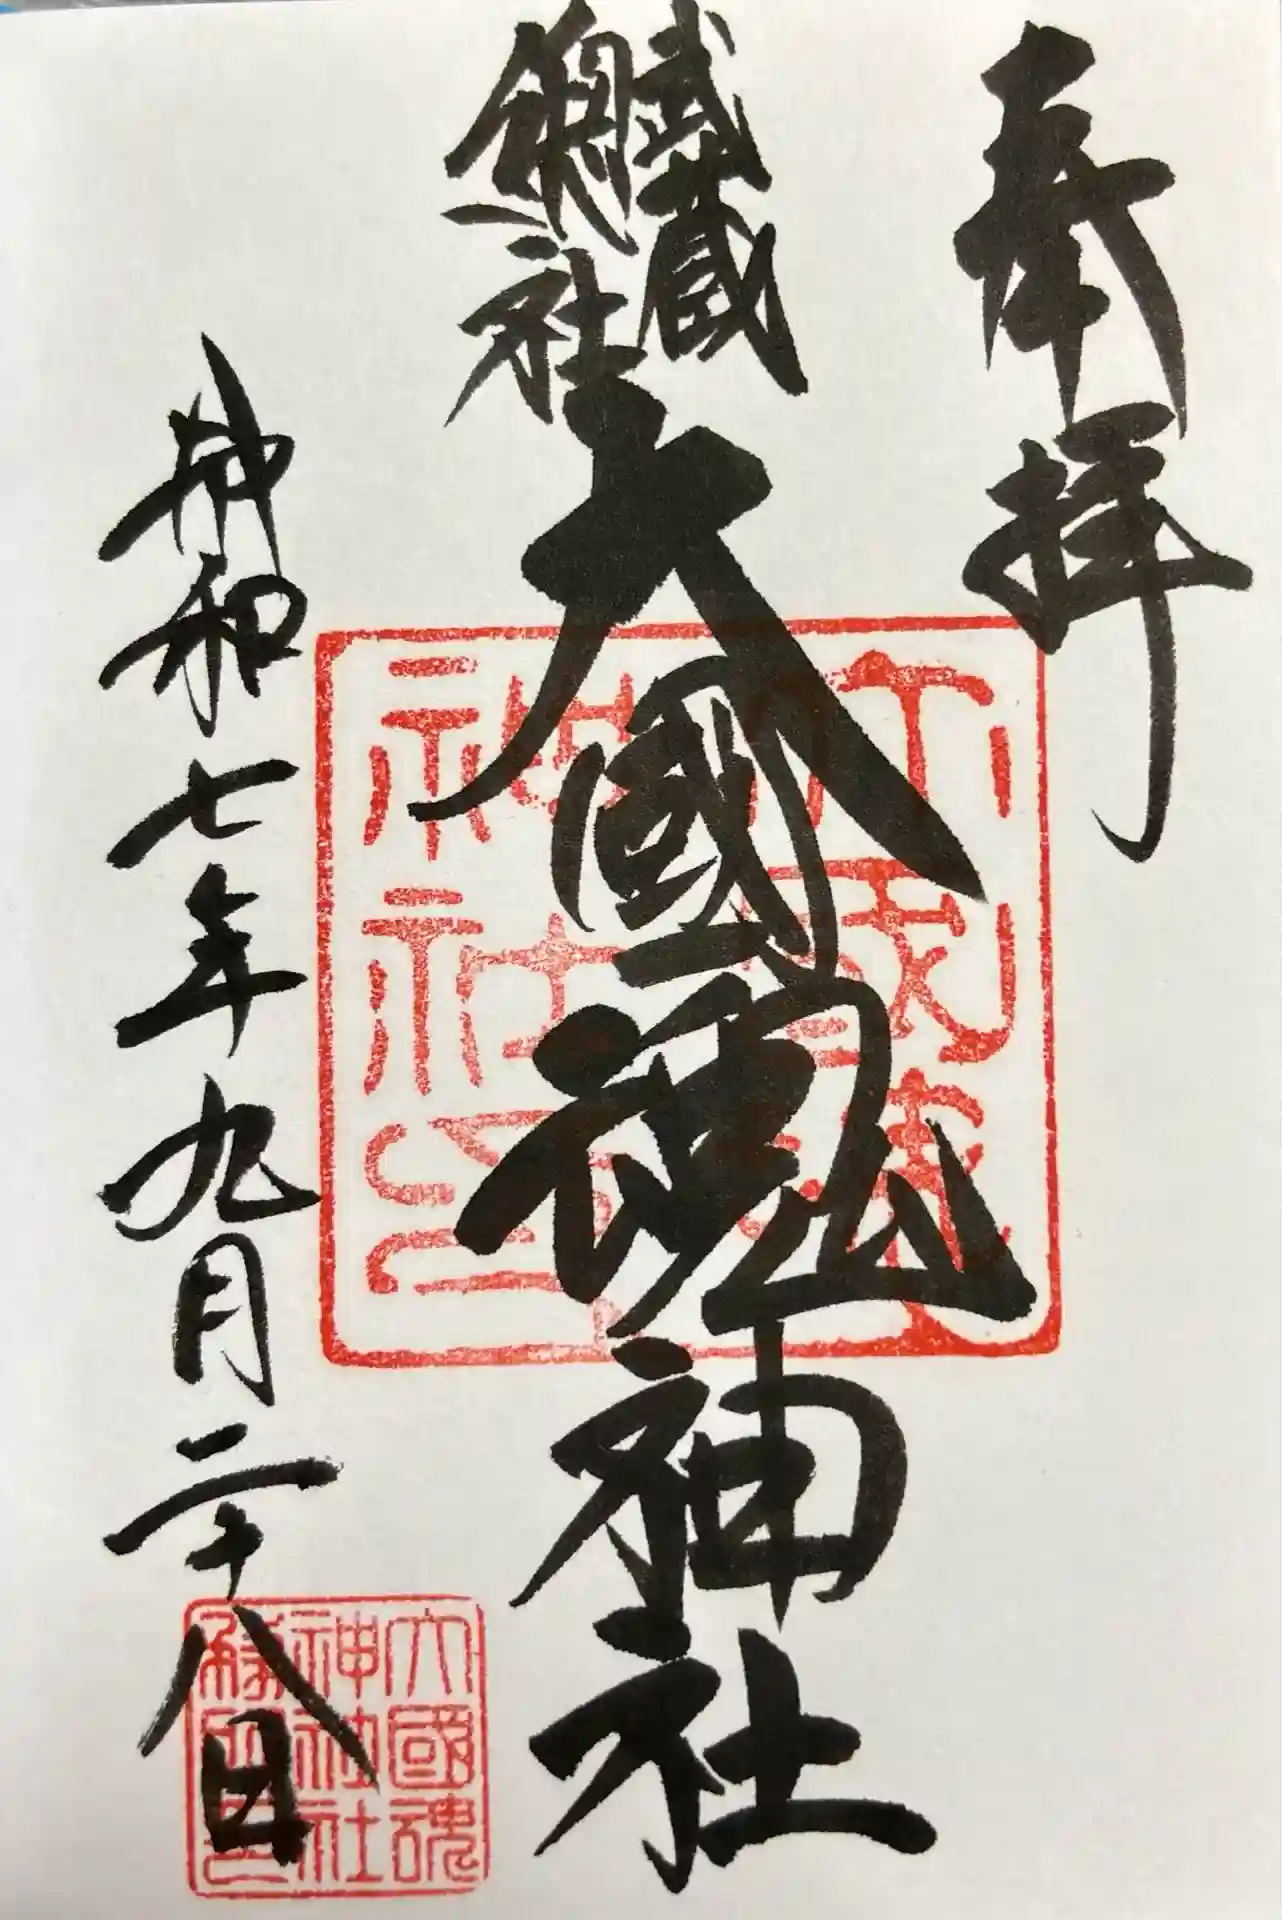 奉拝
武蔵
総社
大國魂神社
令和七年九月二十八日
大國魂
神社
大國魂
神社印